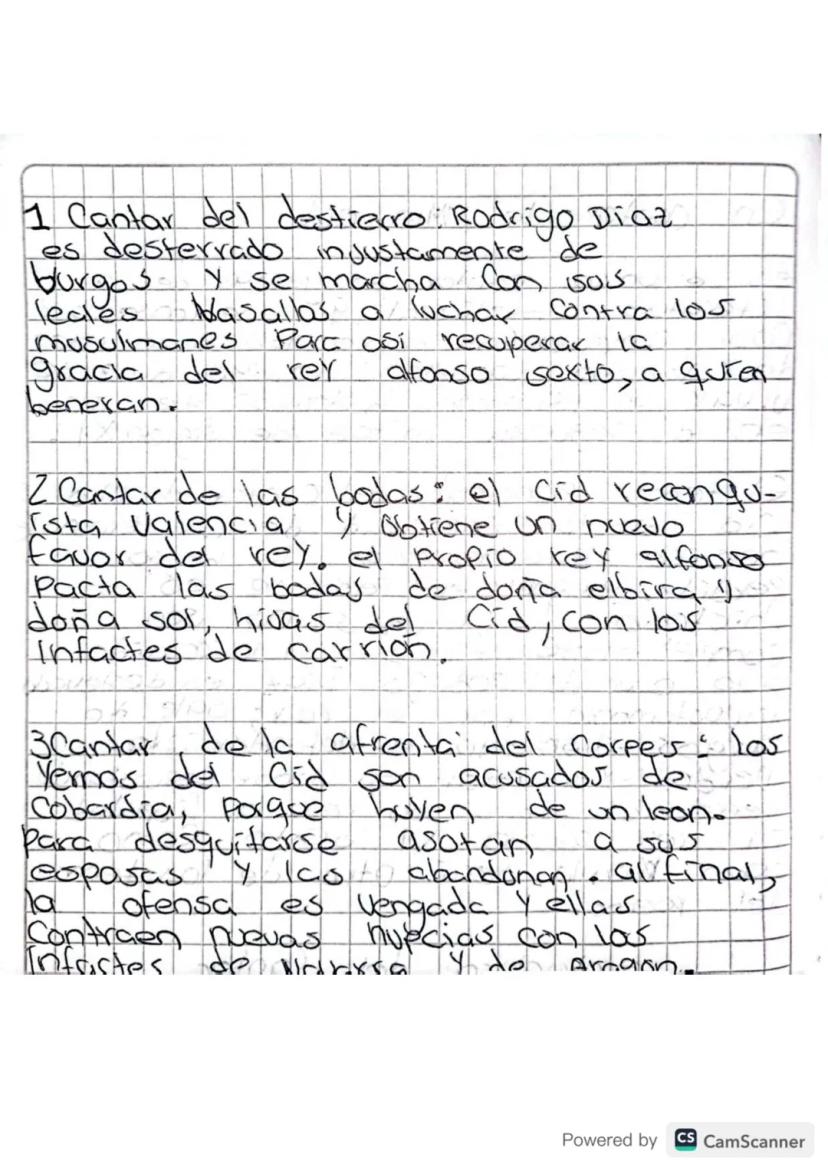 1 Cantar del destierro: Rodrigo Diaz
es desterrado injustamente de
burgos y se marcha con sus
leales vasallos a luchar contra los
musulmanes Para asi recuperar la
gracia del rey alfonso sexto, a quien
beneran.
2 Cantar de las bodas: el Cid reconqu-
ista valencia y obtiene un nuevo
favor del rey. el propio rey alfonso
pacta las bodas de doña elbira y
doña sol, hijas del Cid, con los
infactes de carrión.
3 Cantar de la afrenta del corpes: los
Yernos del Cid son acusados de
Cobardia, porque huyen de un leon.
Para desquitarse asotan a sus
esposas y las abandonan. al final,
la ofensa es vengada y ellas
Contraen nuevas nupcias con los
Infactes de Navarra y de Aragon.
Powered by CS CamScanner